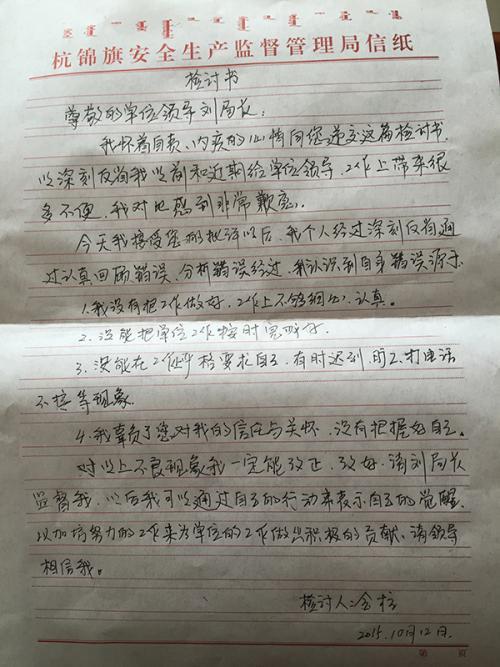 杭锦旗安全生产监督管理局信纸
检讨书
尊敬的单位领导刘局长：
我怀着自责、内疚的心情向您递交这篇检讨书，
以深刻反省我以前和近期给单位领导、工作上带来很
多不便，我对此感到非常歉意。
今天我接受您的批评以后，我个人经过深刻反省通
过认真回顾错误、分析错误经过，我认识到自身错误源于
1.我没有把工作做好，工作上不够细心、认真。
2.没能把单位工作按时完成好。
3.没能在工作中严格要求自己，有时迟到、旷工、打电话
不接等现象
4.我辜负了您对我的信任与关怀，没有把握好自己。
对以上不良现象我一定能改正，改好，请刘局长
监督我，以后我可以通过自己的行动来表示自己的觉醒，
以加倍努力的工作来为单位的工作做出积极的贡献，请领导
相信我。
检讨人：金柱
2015.10月12日.
第 页